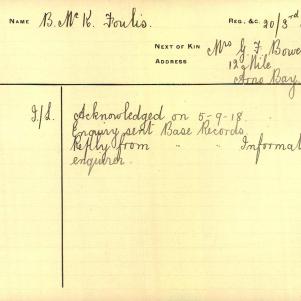 NAME B. McK. Foulis. REG. &C. 20/3rd
NEXT OF KIN Mrs G. F. Bowe
ADDRESS 12 Mile,
Arno Bay
I/L. Acknowledged on 5-9-18.
Enquiry sent Base Records.
Reply from " " Informat
enquirer.